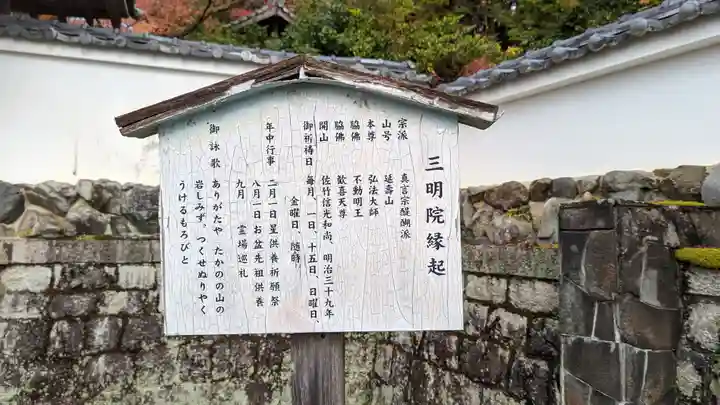 三明院縁起
宗派 真言宗醍醐派
山号 延壽山
本尊 弘法大師
脇佛 不動明王
脇佛 歓喜天尊
開山 佐竹信光和尚、明治三十九年
御祈祷日 毎月、一日、十五日、日曜日、
金曜日、随時
年中行事 二月一日星供養祈願祭
八月一日お盆先祖供養
九月 霊場巡礼
御詠歌 ありがたや たかのの山の
岩しみず。つくせぬりやく
うけるもろびと